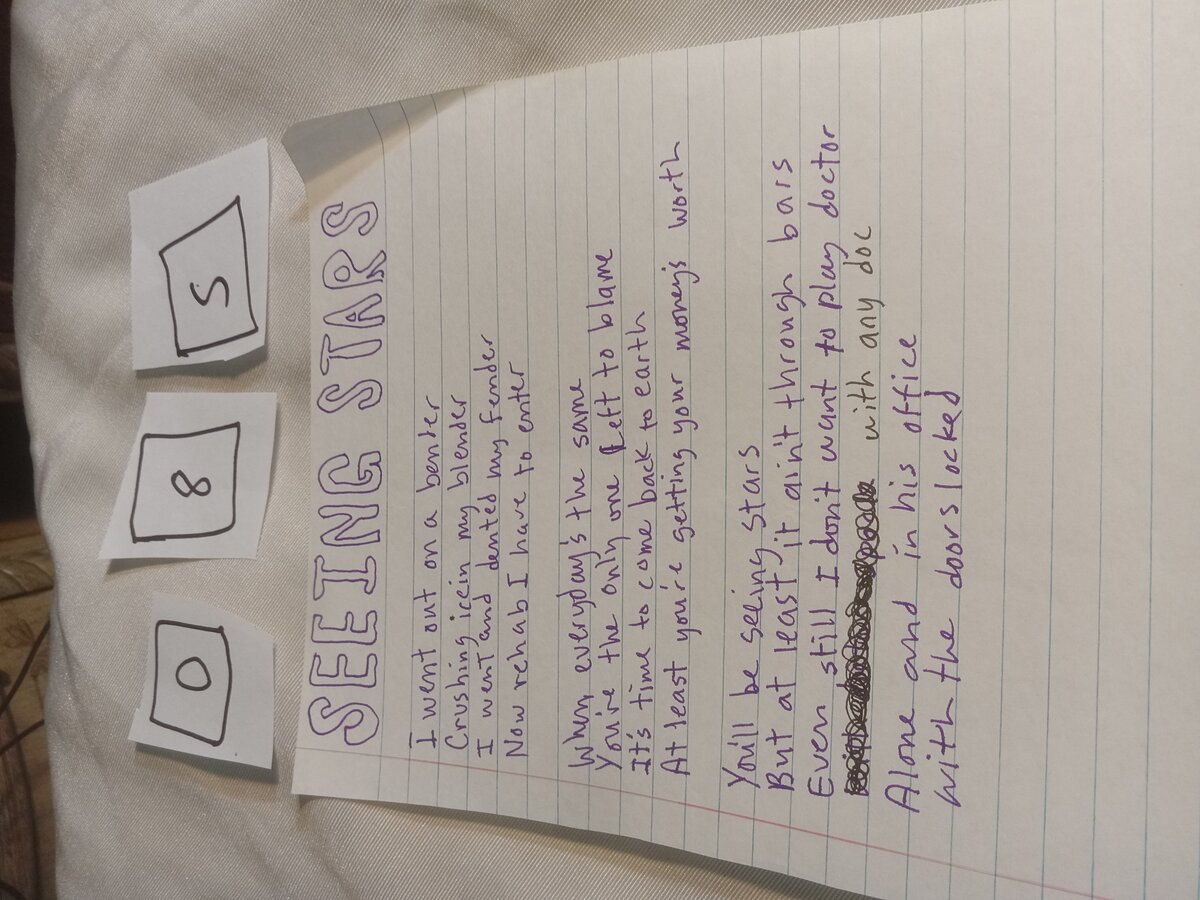 0 8 5
SEEING STARS
I went out on a bender
Crushing ice in my blender
I went and dented my fender
Now rehab I have to enter
When everyday's the same
You're the only one left to blame
It's time to come back to earth
At least you're getting your money's worth
You'll be seeing stars
But at least it ain't through bars
Even still I don't want to play doctor
with any doc
Alone and in his office
with the doors locked